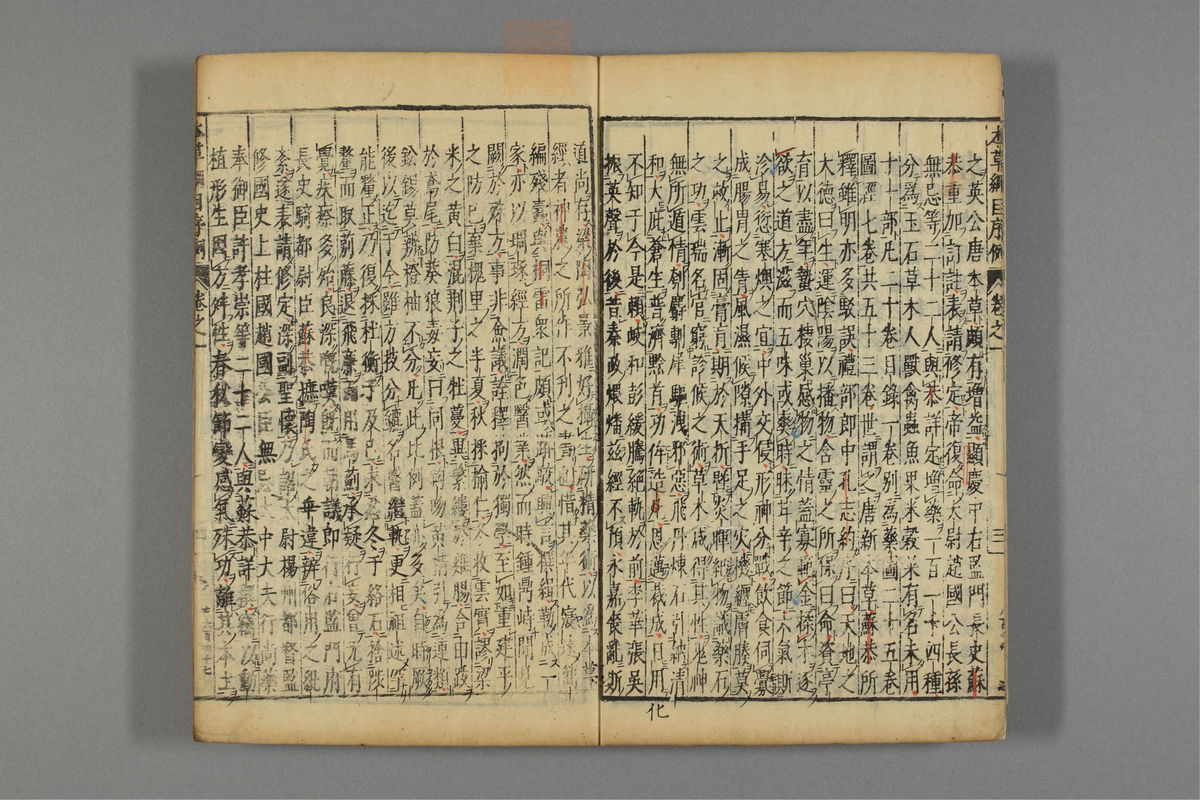 本草綱目序例 卷之一 三
之英公唐本草頗有增益顯慶中右監門長史蘇
恭重加訂註表請修定帝復命太尉趙國公長孫
無忌等二十二人與恭詳定增藥一百一十四種
分爲玉石草木人獸禽蟲魚果米穀米有名未用
十一部凡二十卷目錄一卷别爲藥圖二十五卷
圖經七卷共五十三卷世謂之唐新本草蘇恭所
釋雖明亦多駁誤禮部郎中孔志約序曰天地之
大德曰生運陰陽以播物含靈之所保曰命資亭
育以盡年蟄穴棲巢感物之情蓋寡範金揉木逐
欲之道方滋而五味或爽時昧甘辛之節六氣斯
沴易愆寒燠之宜中外交侵形神分戰飲食伺釁
成腸胃之眚風濕候隙構手足之災機纏膚腠莫
之救止漸固膏肓期於夭折暨炎暉紀物識藥石
之功雲瑞名官窮診候之術草木咸得其性鬼神
無所遁情刳麝剸犀驅洩邪惡飛丹煉石引納清
和大庇蒼生普濟黔首功侔造化恩邁裁成日用
不知于今是賴岐和彭緩騰絕軌於前李華張吳
振英聲於後昔秦政煨燔茲經不預永嘉喪亂斯
化
道尚存梁陶弘景雅好攝生研精藥術以爲本草
經者神農之所作不刊之書也惜其年代浸遠簡
編殘蠹與桐雷衆記頗或踳駁興言撰緝勒成一
家亦以琱琢經方潤色醫業然而時鍾鼎峙聞見
闕於殊方事非僉議詮釋拘於獨學至如重建平
之防己棄槐里之半夏秋採榆仁冬收雲實謬粱
米之黃白混荊子之牡蔓異繁縷於雞腸合由跋
於鳶尾防葵狼毒妄曰同根鉤吻黃精引爲連類
鉛錫莫辨橙柚不分凡此比例蓋亦多矣自時厥
後以迄于今雖方技分鑣名醫繼軌更相祖述罕
能釐正乃復採杜衡於及己求忍冬於絡石捨陟
釐而取䓎藤退飛亷而用馬薊承疑行妄曾無有
覺疾瘵多殆良深慨嘆既而朝議郎行右監門府
長史騎都尉臣蘇恭摭陶氏之乖違辨俗用之紕
紊遂表請修定深副聖懷乃詔太尉揚州都督監
修國史上柱國趙國公臣無忌太中大夫行尚藥
奉御臣許孝崇等二十二人與蘇恭詳撰竊以動
植形生因方舛性春秋節變感氣殊功離其本土
本草綱目序例 卷之一